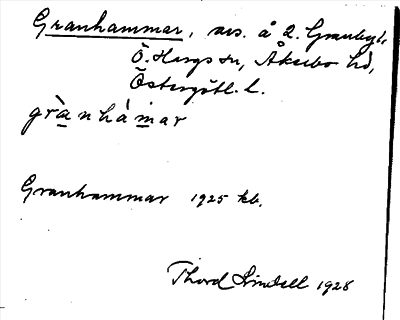 Granhammar, avs. å 2. Granby 1,
Ö. Hargs sn, Åkerbo hd,
Östergötl. l.
gràn hámar
Granhammar 1925 kb.
Thord Lindell 1928